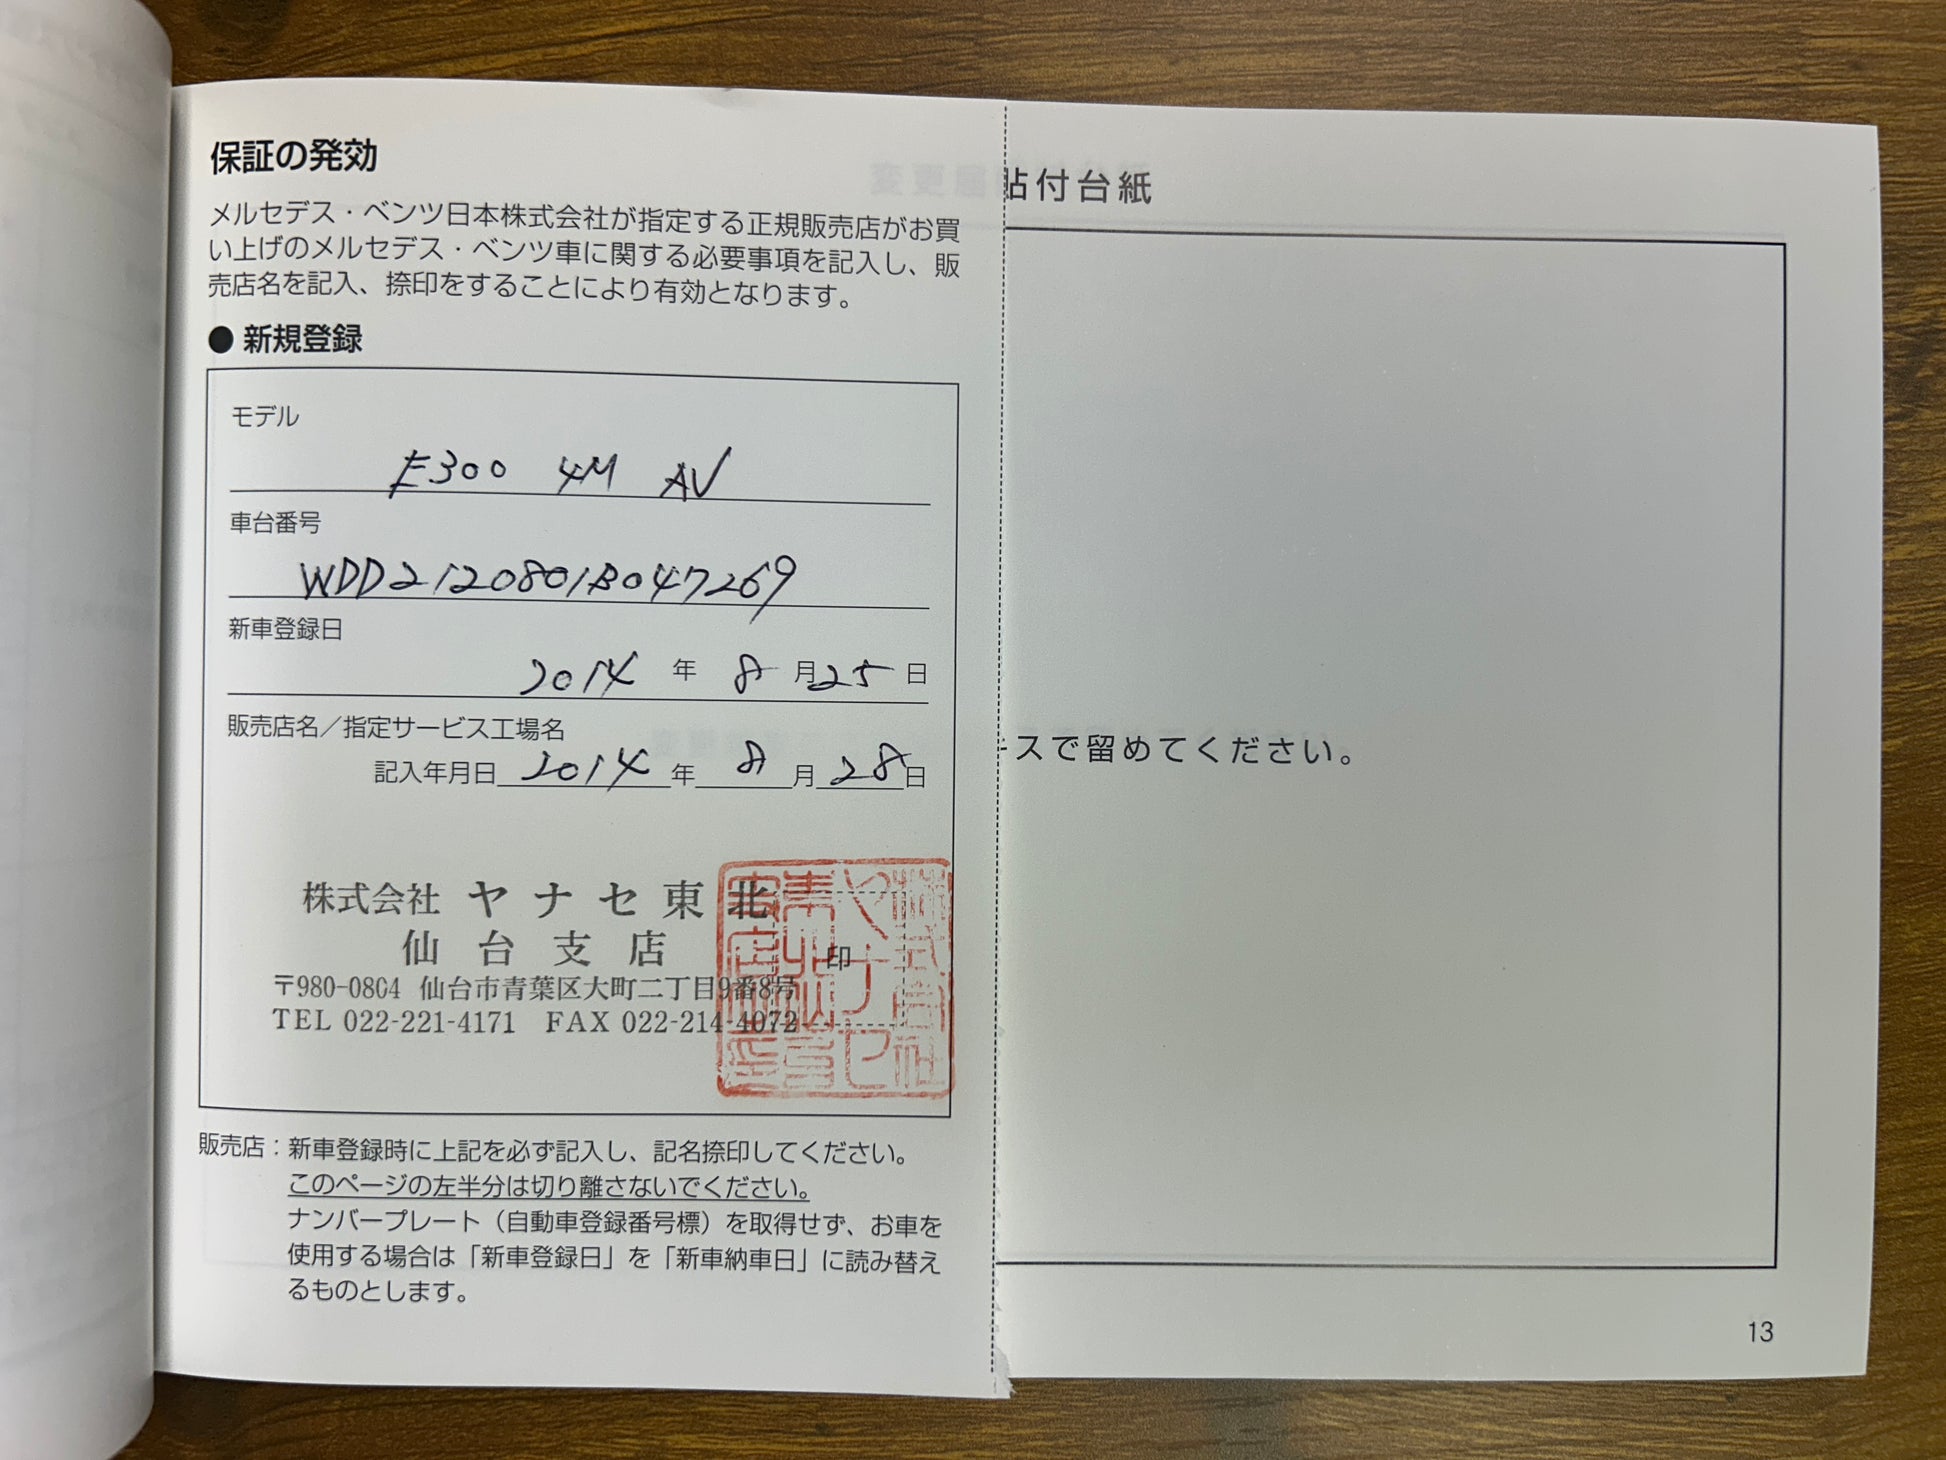 保証の発効
メルセデス・ベンツ日本株式会社が指定する正規販売店がお買
い上げのメルセデス・ベンツ車に関する必要事項を記入し、販
売店名を記入、捺印をすることにより有効となります。
● 新規登録
モデル
E300 4M AV
車台番号
WDD2120801B047269
新車登録日
2014 年 8 月 25 日
販売店名／指定サービス工場名
記入年月日 2014 年 8 月 28 日
株式会社 ヤナセ東北
仙台支店
〒980-0804 仙台市青葉区大町二丁目9番8号
TEL 022-221-4171 FAX 022-214-4072
印
販売店：新車登録時に上記を必ず記入し、記名捺印してください。
このページの左半分は切り離さないでください。
ナンバープレート（自動車登録番号標）を取得せず、お車を
使用する場合は「新車登録日」を「新車納車日」に読み替え
るものとします。
貼付台紙
スで留めてください。
13